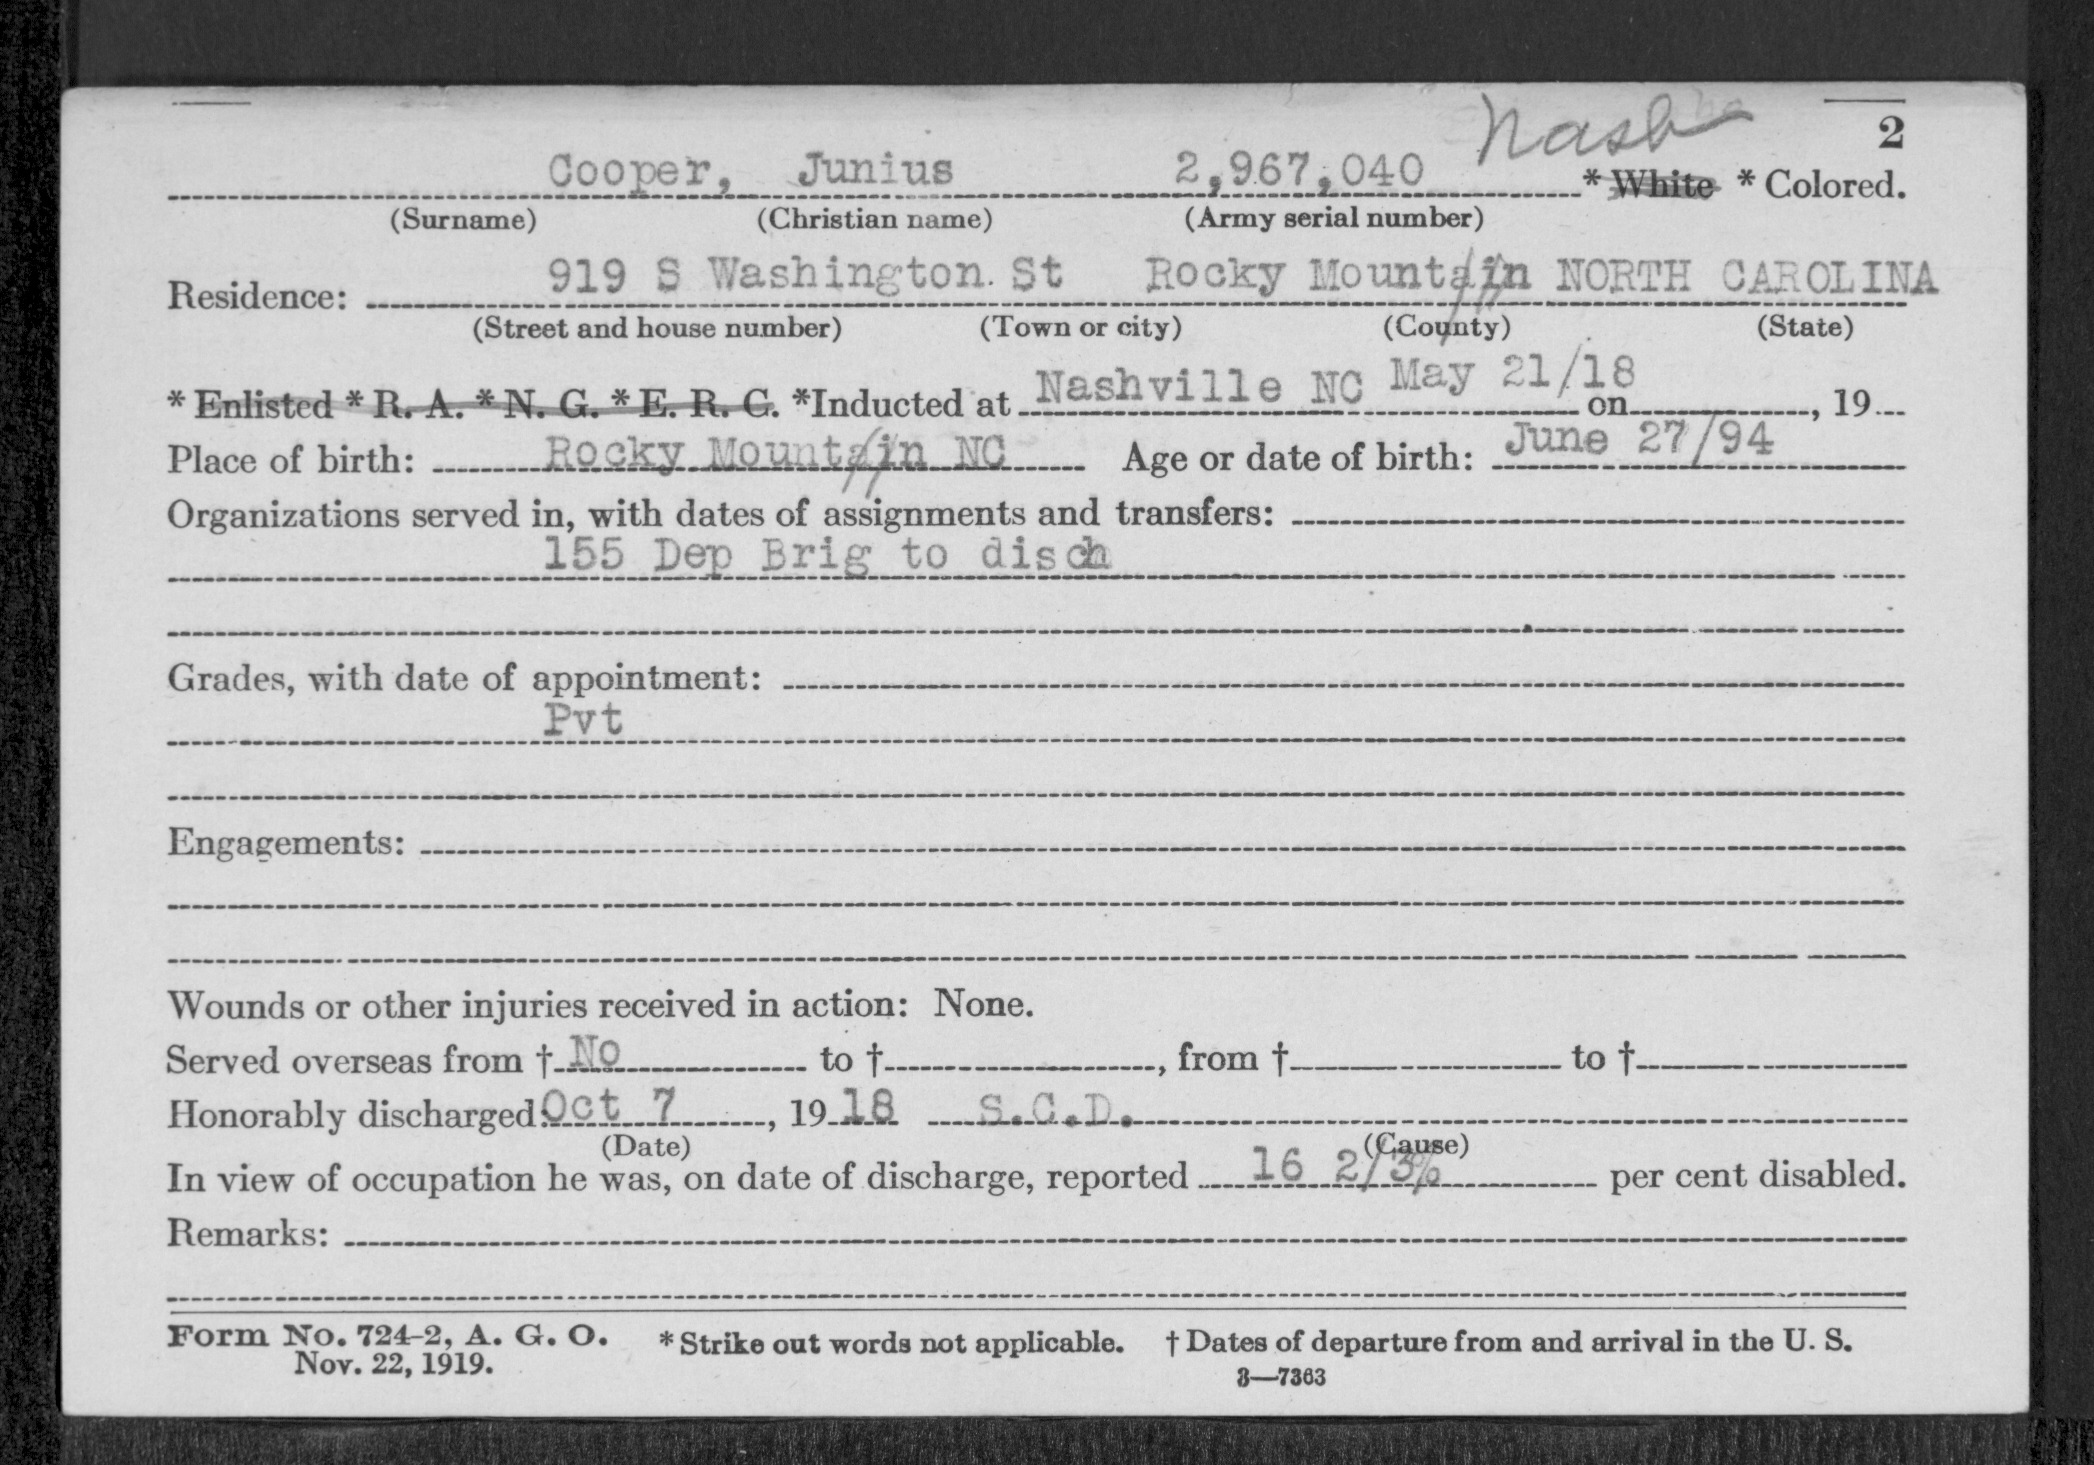 Nash 2
Cooper, Junius 2,967,040 * White * Colored.
(Surname) (Christian name) (Army serial number)
Residence: 919 S Washington St Rocky Mountain NORTH CAROLINA
(Street and house number) (Town or city) (County) (State)
* Enlisted * R. A. * N. G. * E. R. C. *Inducted at Nashville NC on May 21/18, 19
Place of birth: Rocky Mountain NC Age or date of birth: June 27/94
Organizations served in, with dates of assignments and transfers:
155 Dep Brig to disch
Grades, with date of appointment:
Pvt
Engagements:
Wounds or other injuries received in action: None.
Served overseas from † No to †, from † to †
Honorably discharged: Oct 7, 1918 S.C.D.
(Date) (Cause)
In view of occupation he was, on date of discharge, reported 16 2/3% per cent disabled.
Remarks:
Form No. 724-2, A. G. O. * Strike out words not applicable. † Dates of departure from and arrival in the U. S.
Nov. 22, 1919. 3—7363